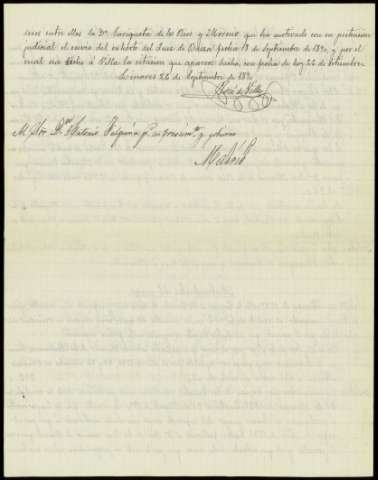 cinos entre ellos la Dª. Enriqueta de los Rios y Moreno que ha motivado con su peticion
judicial el envio del exhorto del Juez de fecha 13 de Septiembre de 1890, y por el
cual se á Villa la citacion que aparece hecha con fecha de hoy 26 de Setiembre
Linares 26 de Septiembre de 1890
José de Villa
Sr. Dn. Antonio su y gobierno
Madrid